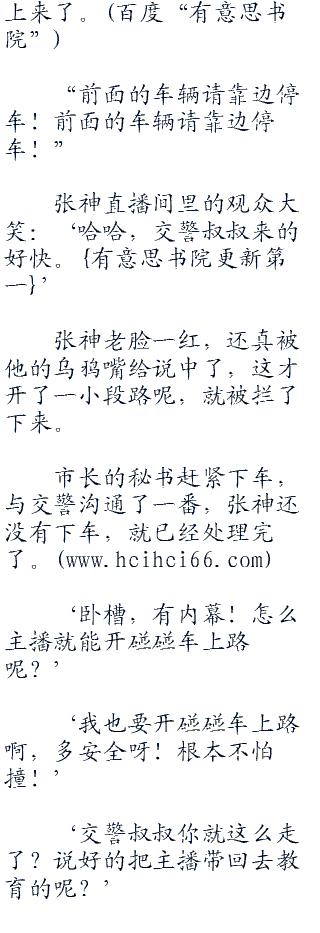 上来了。(百度“有意思书
院”)
“前面的车辆请靠边停
车！前面的车辆请靠边停
车！”
张神直播间里的观众大
笑：‘哈哈，交警叔叔来的
好快。{有意思书院更新第
一}’
张神老脸一红，还真被
他的乌鸦嘴给说中了，这才
开了一小段路呢，就被拦了
下来。
市长的秘书赶紧下车，
与交警沟通了一番，张神还
没有下车，就已经处理完
了。(www.hcihci66.com)
‘卧槽，有内幕！怎么
主播就能开碰碰车上路
呢？’
‘我也要开碰碰车上路
啊，多安全呀！根本不怕
撞！’
‘交警叔叔你就这么走
了？说好的把主播带回去教
育的呢？’